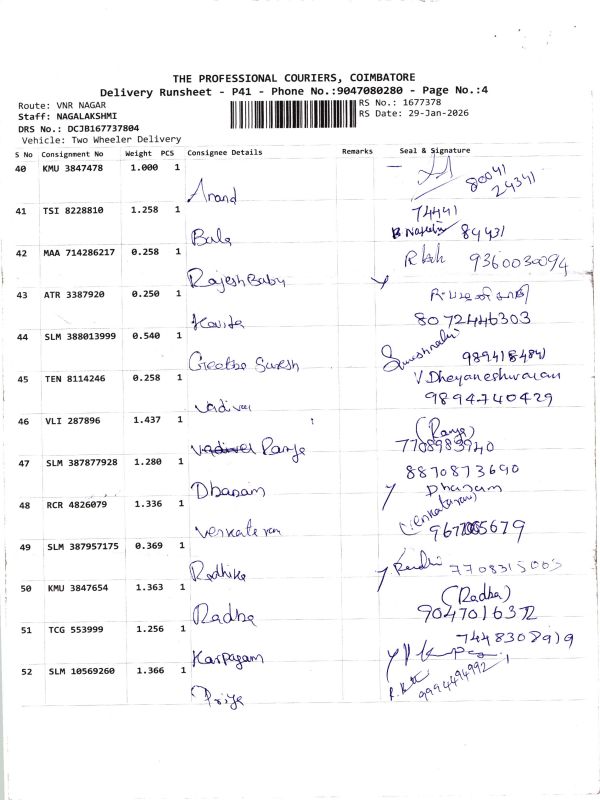 THE PROFESSIONAL COURIERS, COIMBATORE
Delivery Runsheet - P41 - Phone No.:9047080280 - Page No.:4
Route: VNR NAGAR
RS No.: 1677378
Staff: NAGALAKSHMI
RS Date: 29-Jan-2026
DRS No.: DCJB167737804
Vehicle: Two Wheeler Delivery
S No Consignment No Weight PCS Consignee Details Remarks Seal & Signature
40 KMU 3847478 1.000 1 Anand 80041 24341
41 TSI 8228810 1.258 1 Bala 74441 84431
42 MAA 714286217 0.258 1 Rajesh Babu 9360030094
43 ATR 3387920 0.250 1 Kavita 8072446303
44 SLM 388013999 0.540 1 Geetha Suresh
45 TEN 8114246 0.258 1 Vadivu V Dheyaneshwaran 9894740429
46 VLI 287896 1.437 1 Ramya (Ramya) 7708983940
47 SLM 387877928 1.280 1 Dhanam 8870873690 Dhanam
48 RCR 4826079 1.336 1 Venkateran (Venkateran)
49 SLM 387957175 0.369 1 Radhika 7708315003
50 KMU 3847654 1.363 1 Radha (Radha) 9047016372
51 TCG 553999 1.256 1 Karpagam 7448308919
52 SLM 10569260 1.366 1 Priya 9994494992